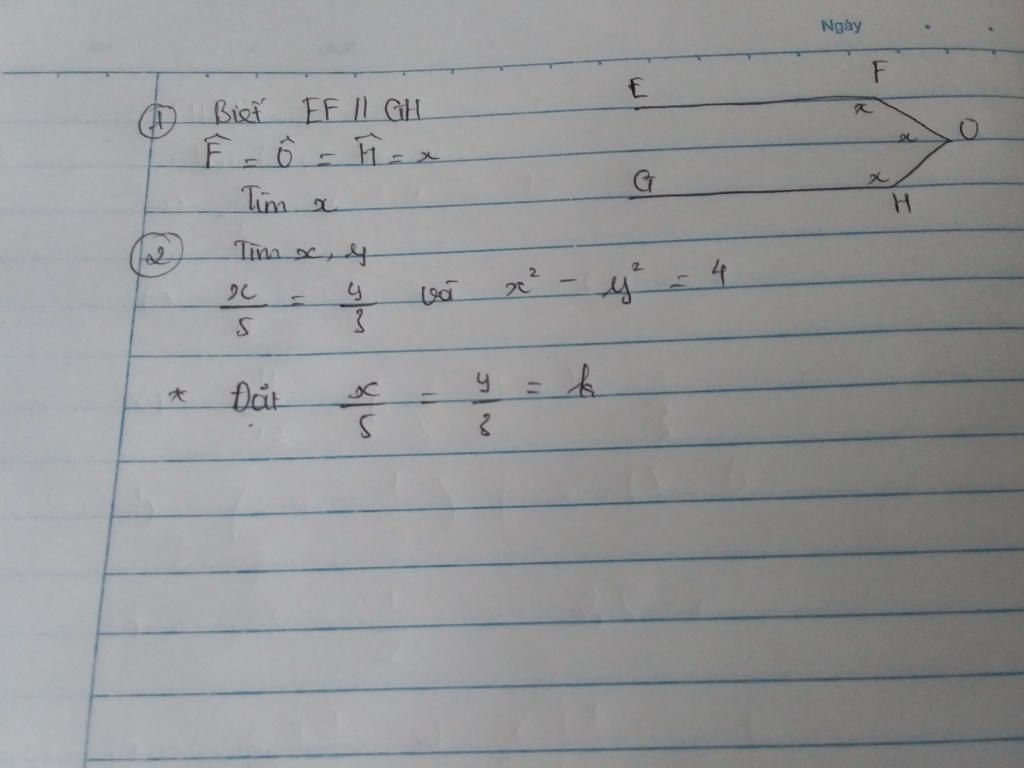 Ngày
① Biết EF // GH
F̂ = Ô = Ĥ = x
Tìm x
E F
x
x O
G x
H
② Tìm x, y
x/5 = y/3 và x² - y² = 4
* Đặt x/5 = y/3 = k